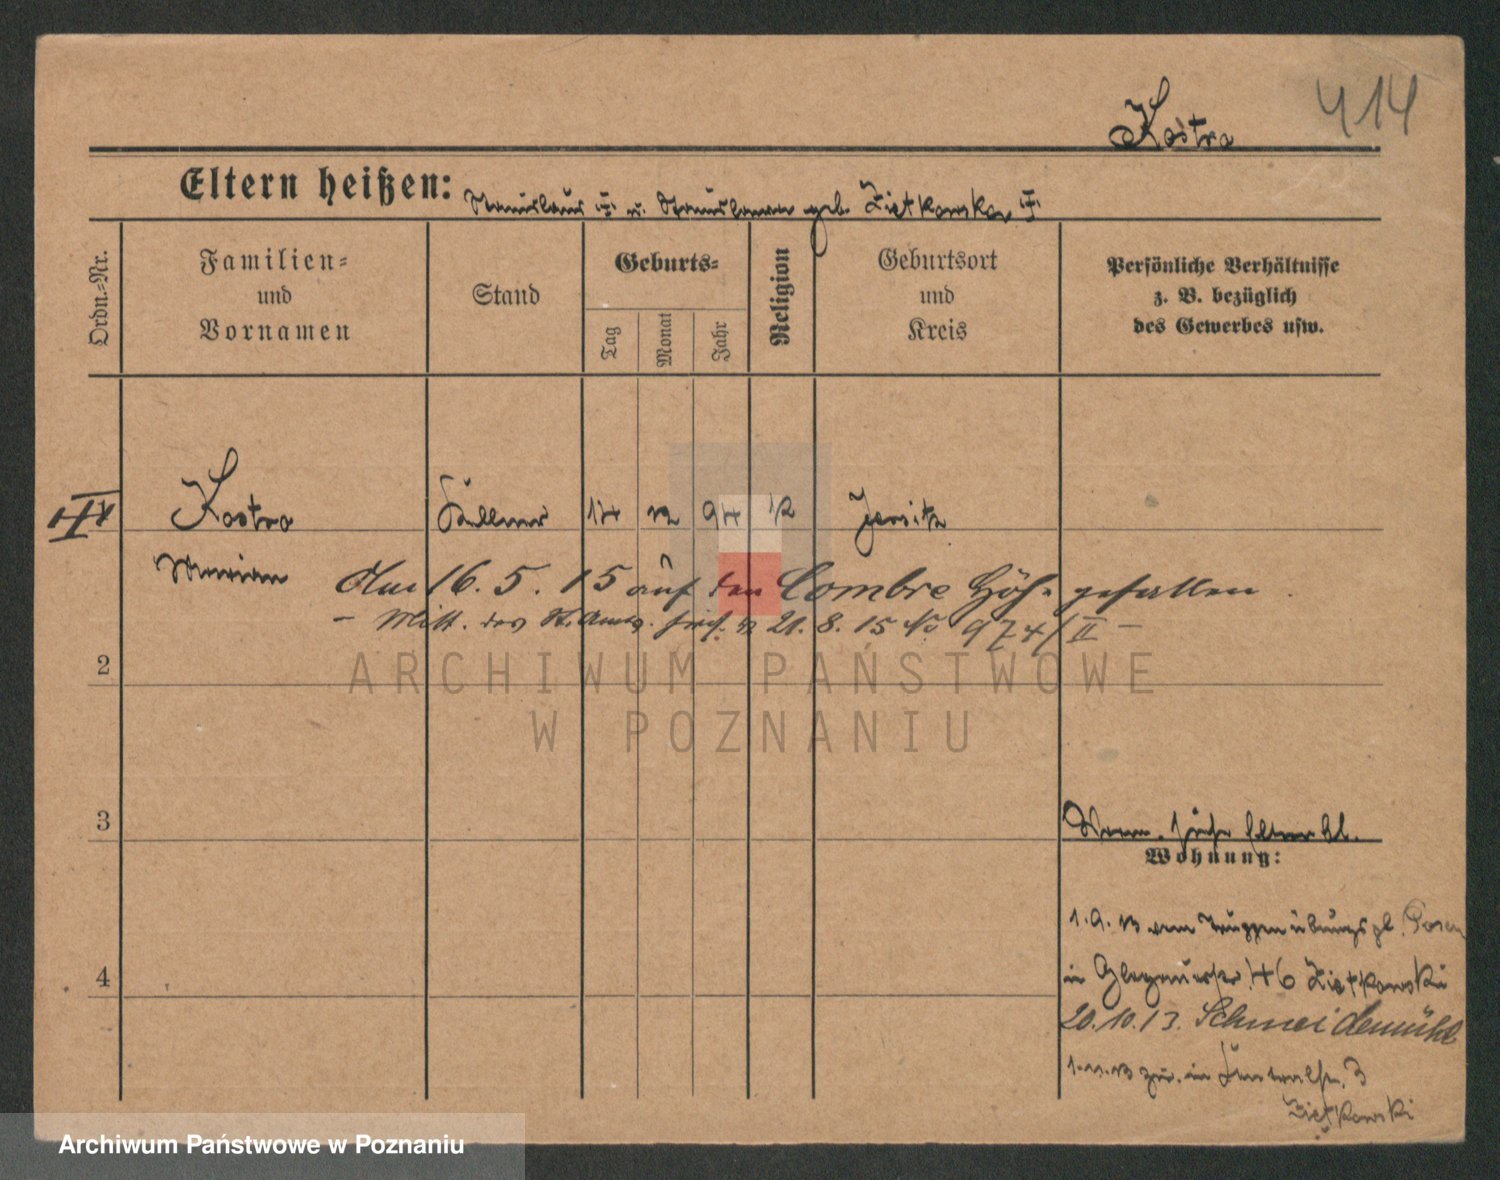 414
Kostra
Eltern heißen: Stanislaus u. Stanislawa geb. Zietkowska
Ordn.-Nr.
Familien-
und
Vornamen
Stand
Geburts-
Tag
Monat
Jahr
Religion
Geburtsort
und
Kreis
Persönliche Verhältnisse
z. B. bezüglich
des Gewerbes usw.
Kostra Kellner 14 12 94 K Jersitz
Marian
Am 16. 5. 15 auf den Combre Höh. gefallen.
- Mitt. des St. Amts 21. 8. 15 No 974/II -
2
3
Wohnung:
1.9.13 vom Truppenübungspl. Posen
in Glogauerstr. 46 Zietkowski
4
20.10.13. Schneidemühl
1.11.13 zur. in 3
Zietkowski
ARCHIWUM PAŃSTWOWE
W POZNANIU
Archiwum Państwowe w Poznaniu